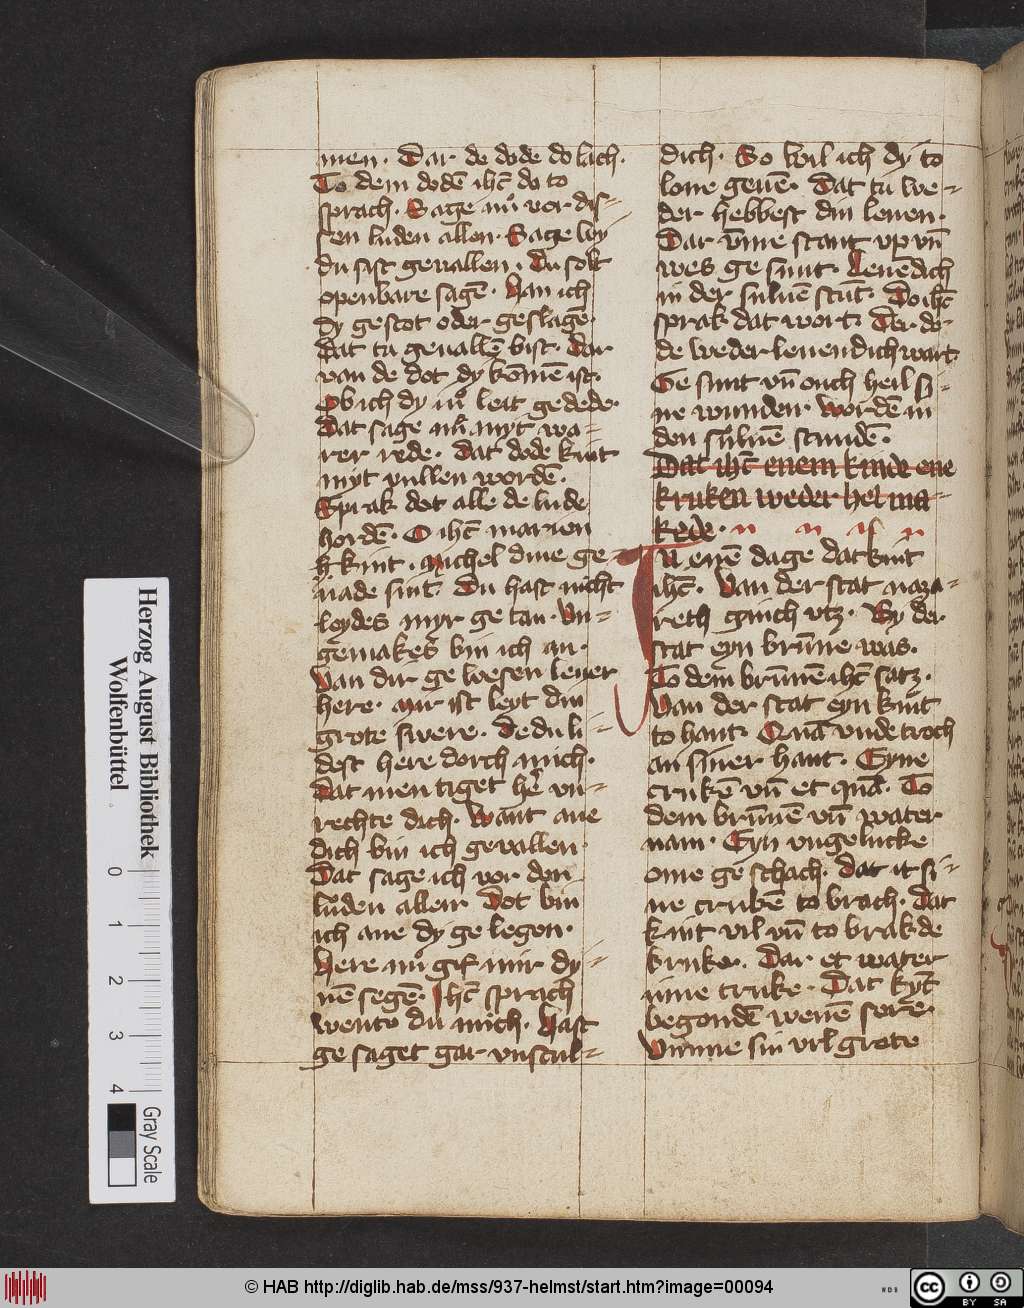 men. Dar de dode do lach.
To dem dodē ihc̄ do to
sprach. Sage nuͦ vor dis-
sen luden allen. Sage wy
du sist geuallen. Du solt
openbare sagē. Van ich
dy gestot oder geslagē.
dat tu geuallē bist. Dar
van de dot dy komē ist.
Ob ich dy iuͦ leit gedede.
Dat sage myt wa-
rer rede. Dat dode kint
myt vullen wordē.
Sprak dot alle de lude
hordē. O ihc̄ marien
kint. Michel dine ge-
nade sint. Du hast nicht
leydes myr ge tan. Vn-
gemakes bin ich an.
Van dir ge wesen leuer
here. Mir ist leyt din
grote swere. De du li-
dest here dorch mich.
Dat men tiget vn-
rechte dich. Want ane
dich bin ich gevallen.
Dat sage ich vor den
luden allen Dot bin
ich ane dy ge legen.
Here nuͦ gif mir dy-
nē segē. Ihc̄ sprach
wente du mich. Hast
ge saget gar vnscul-
dich. So wil ich dy to
lone geuē. Dat tu we-
der hebbest din leuen.
Dar v̄me stant vp vn̄
wes ge sunt. Leuēdich
in der suluē stūt. Do ihc̄
sprak dat wort. Der do-
de weder leuendich wart
Ge sunt vn̄ ouch heil si-
ne wunden. Wordē in
den suluē stundē.
Dat ihc̄ enem kinde ene
kruken weder hel ma-
kede.
In enē dage dat kint
ihc̄. Van der stat naza-
reth ginch vtz. By der
stat eyn brūne was.
To dem brūnē ihc̄ satz.
Van der stat eyn kint
to hant. Quā vnde troch
an siner hant. Eyne
crukē vn̄ et quā. To
dem brūnē vn̄ water
nam. Eyn vngelucke
ome ge schach. dat it si-
ne crukē to brach. Dat
kint vil vn̄ to brak de
kruke. Dar et water
nine truke. Dat kyt̄
begondē wenē sere.
Vmme sin vrl grote
Herzog August Bibliothek
Wolfenbüttel
0 1 2 3 4
Gray Scale
© HAB http://diglib.hab.de/mss/937-helmst/start.htm?image=00094
WDB
cc BY SA